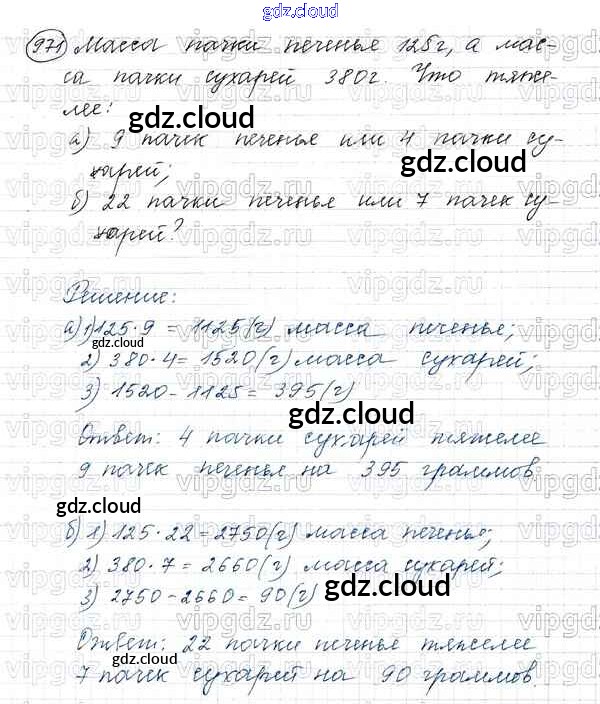 gdz.cloud
971 Масса пачки печенье 125г, а мас-
са пачки сухарей 380г. Что тяже-
лее:
gdz.cloud
а) 9 пачек печенье или 4 пачки су-
gdz.cloud
харей;
б) 22 пачки печенье или 7 пачек су-
харей?
Решение:
а) 1) 125·9 = 1125(г) масса печенье;
gdz.cloud
2) 380·4 = 1520(г) масса сухарей;
3) 1520-1125 = 395(г)
gdz.cloud
Ответ: 4 пачки сухарей тяжелее
9 пачек печенье на 395 граммов.
gdz.cloud
б) 1) 125·22 = 2750(г) масса печенье;
2) 380·7 = 2660(г) масса сухарей;
3) 2750-2660 = 90(г)
gdz.cloud
Ответ: 22 пачки печенье тяжелее
gdz.cloud
7 пачек сухарей на 90 граммов.
gdz.cloud